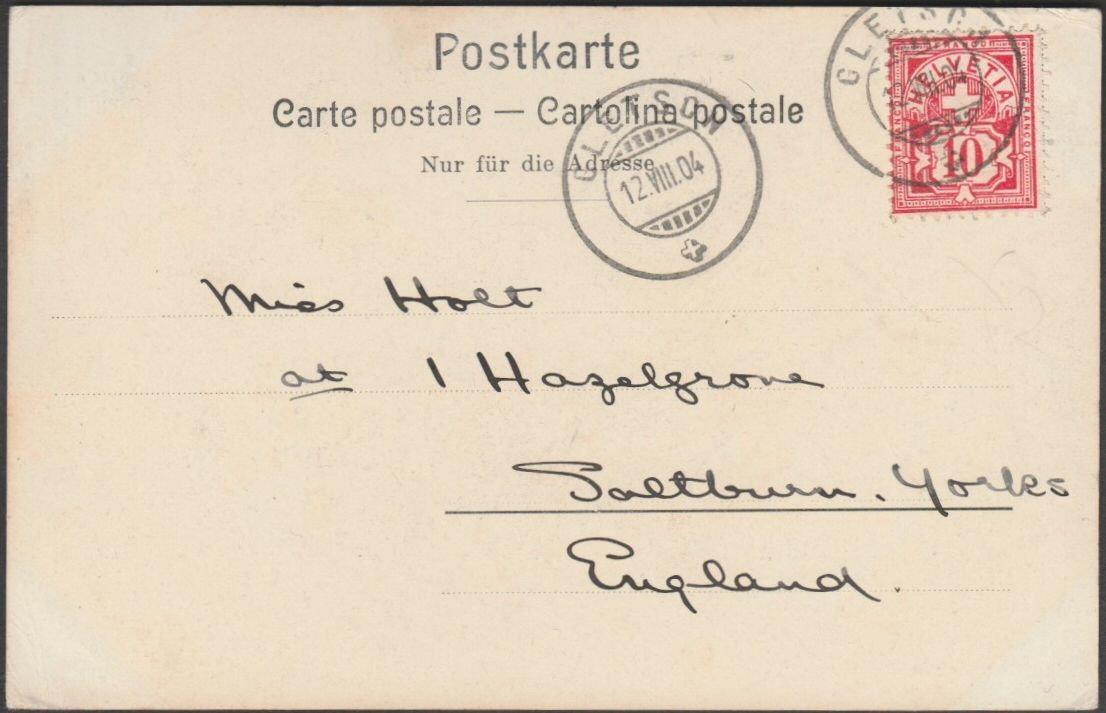 Postkarte
Carte postale — Cartolina postale
Nur für die Adresse
GLETSCH
12.VIII.04
GLETSCH
HELVETIA
FRANCO
10
Miss Holt
at 1 Hazelgrove
Saltburn. Yorks
England.